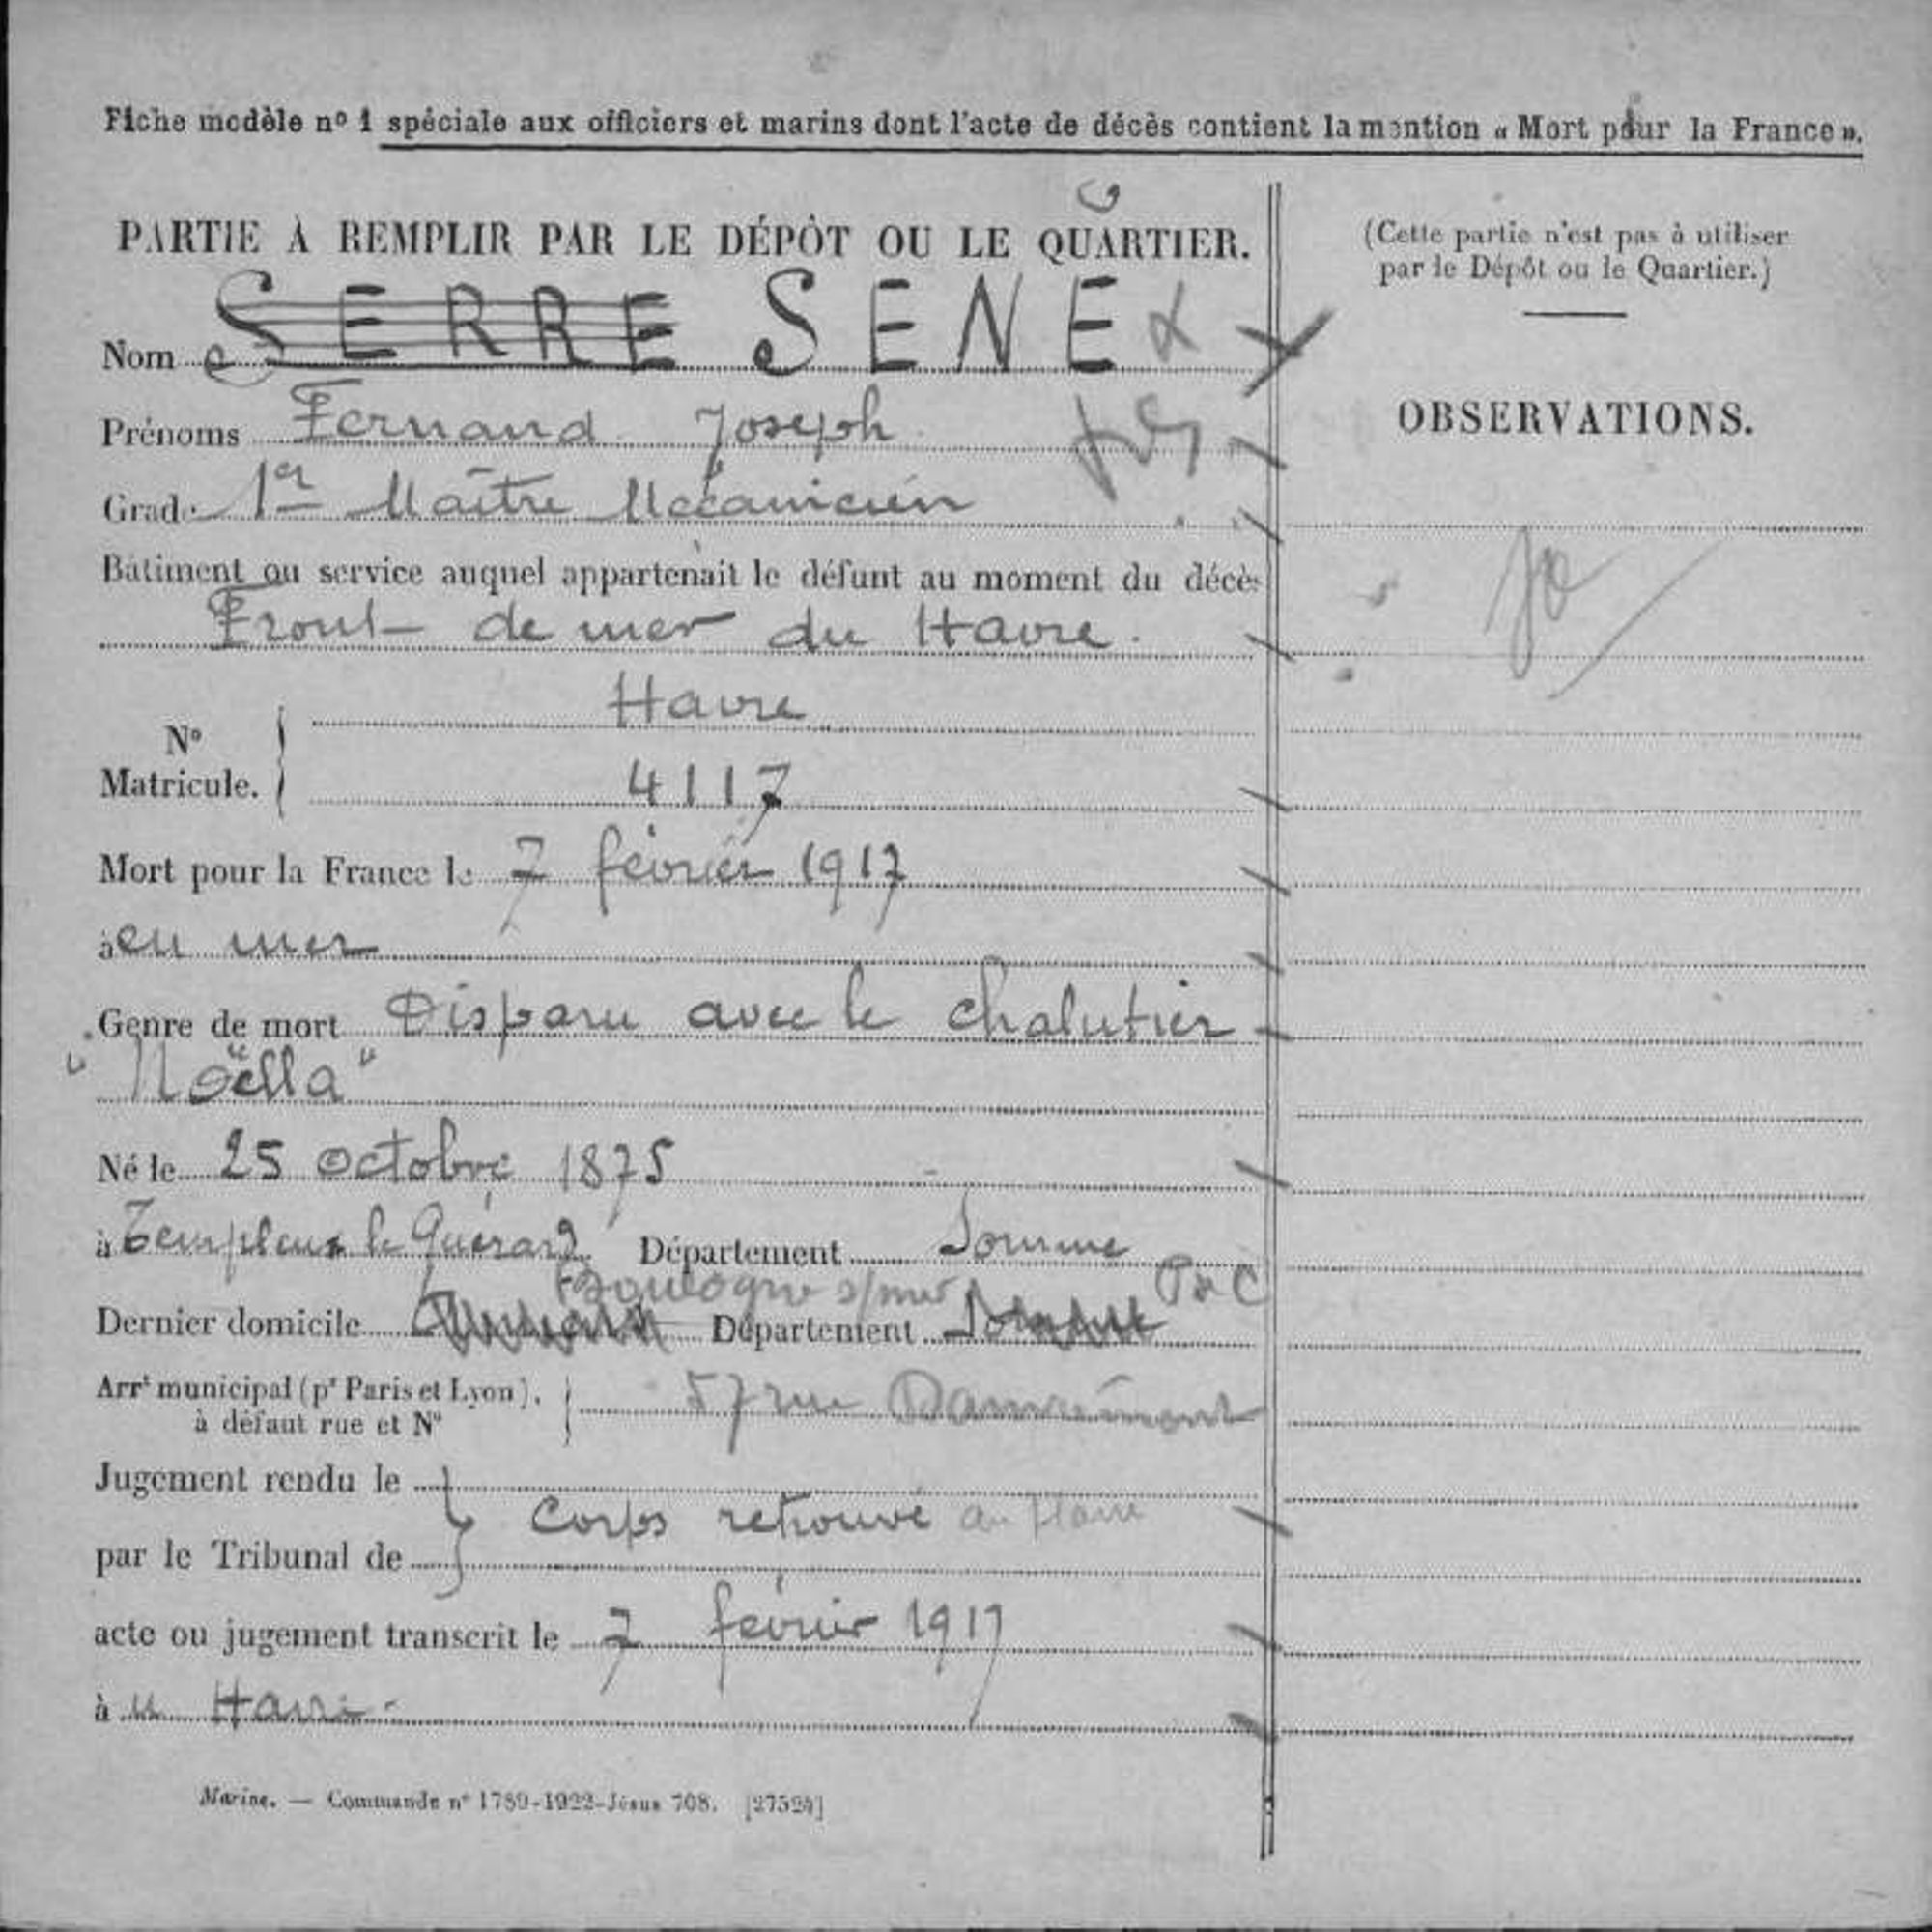 Fiche modèle nº 1 spéciale aux officiers et marins dont l'acte de décès contient la mention « Mort pour la France ».
PARTIE À REMPLIR PAR LE DÉPÔT OU LE QUARTIER.
(Cette partie n'est pas à utiliser
par le Dépôt ou le Quartier.)
Nom SERRE SENE
Prénoms Fernand Joseph
OBSERVATIONS.
Grade 1er Maître Mécanicien
Bâtiment ou service auquel appartenait le défunt au moment du décès
Front de mer du Havre.
Havre
Nº
Matricule.
4117
Mort pour la France le 7 février 1917
à en mer
Genre de mort Disparu avec le chalutier
"Noëlla"
Né le 25 octobre 1875
à Templeux le Guérard Département Somme
Boulogne s/mer P d C
Dernier domicile Département Somme
Arrt municipal (pr Paris et Lyon),
à défaut rue et Nº
57 rue Damrémont
Jugement rendu le
Corps retrouvé au Havre
par le Tribunal de
acte ou jugement transcrit le 7 février 1917
à Havre
Marine. — Commande nº 1789-1922-Jésus 708. [27524]